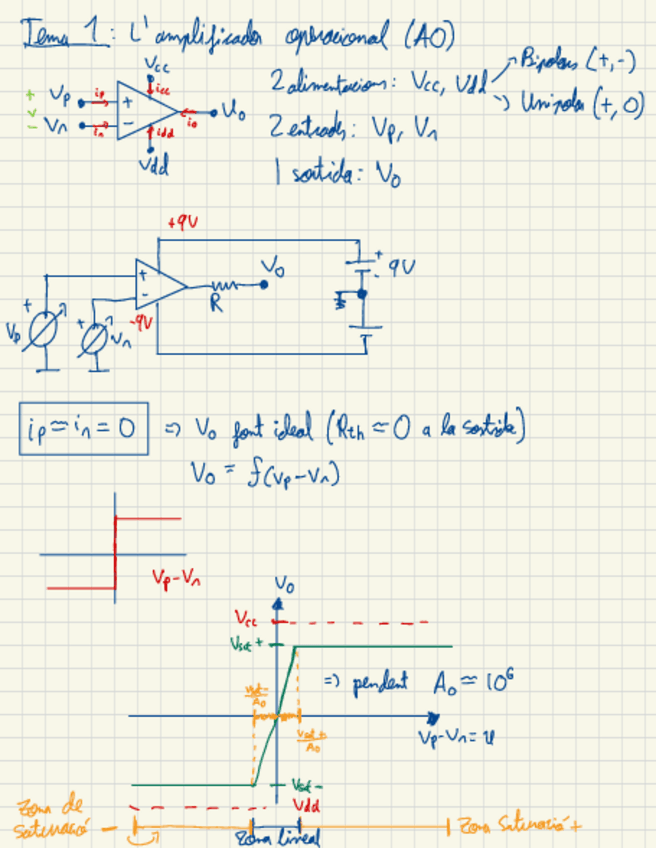 Tema 1: L'amplificador operacional (AO)
Vcc
+ Vp ip + icc
v
- Vn in - idd io Vo
Vdd
2 alimentacions: Vcc, Vdd
Bipolars (+,-)
Unipolar (+,0)
2 entrades: Vp, Vn
1 sortida: Vo
+9V
+
-
R
Vo
+ - 9V
-9V
+ Vp
+ Vn
ip ≃ in = 0 ⇒ Vo font ideal (Rth ≃ 0 a la sortida)
Vo = f(Vp-Vn)
Vp-Vn
Vo
Vcc
Vsat+
⇒ pendent Ao ≃ 10⁶
Vsat-/Ao
Vsat+/Ao
Vp-Vn = v
Vsat-
Vdd
Zona de saturació -
Zona lineal
Zona Saturació +